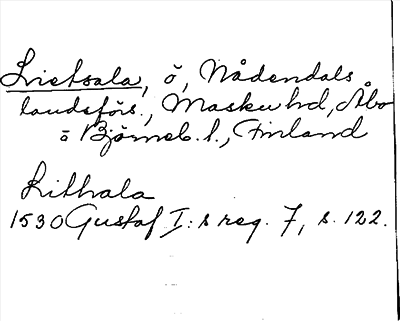 Lietsala, ö, Nådendals
landsförs., Masku hd, Åbo
o Björneb. l., Finland
Lithala
1530 Gustaf I:s reg. 7, s. 122.